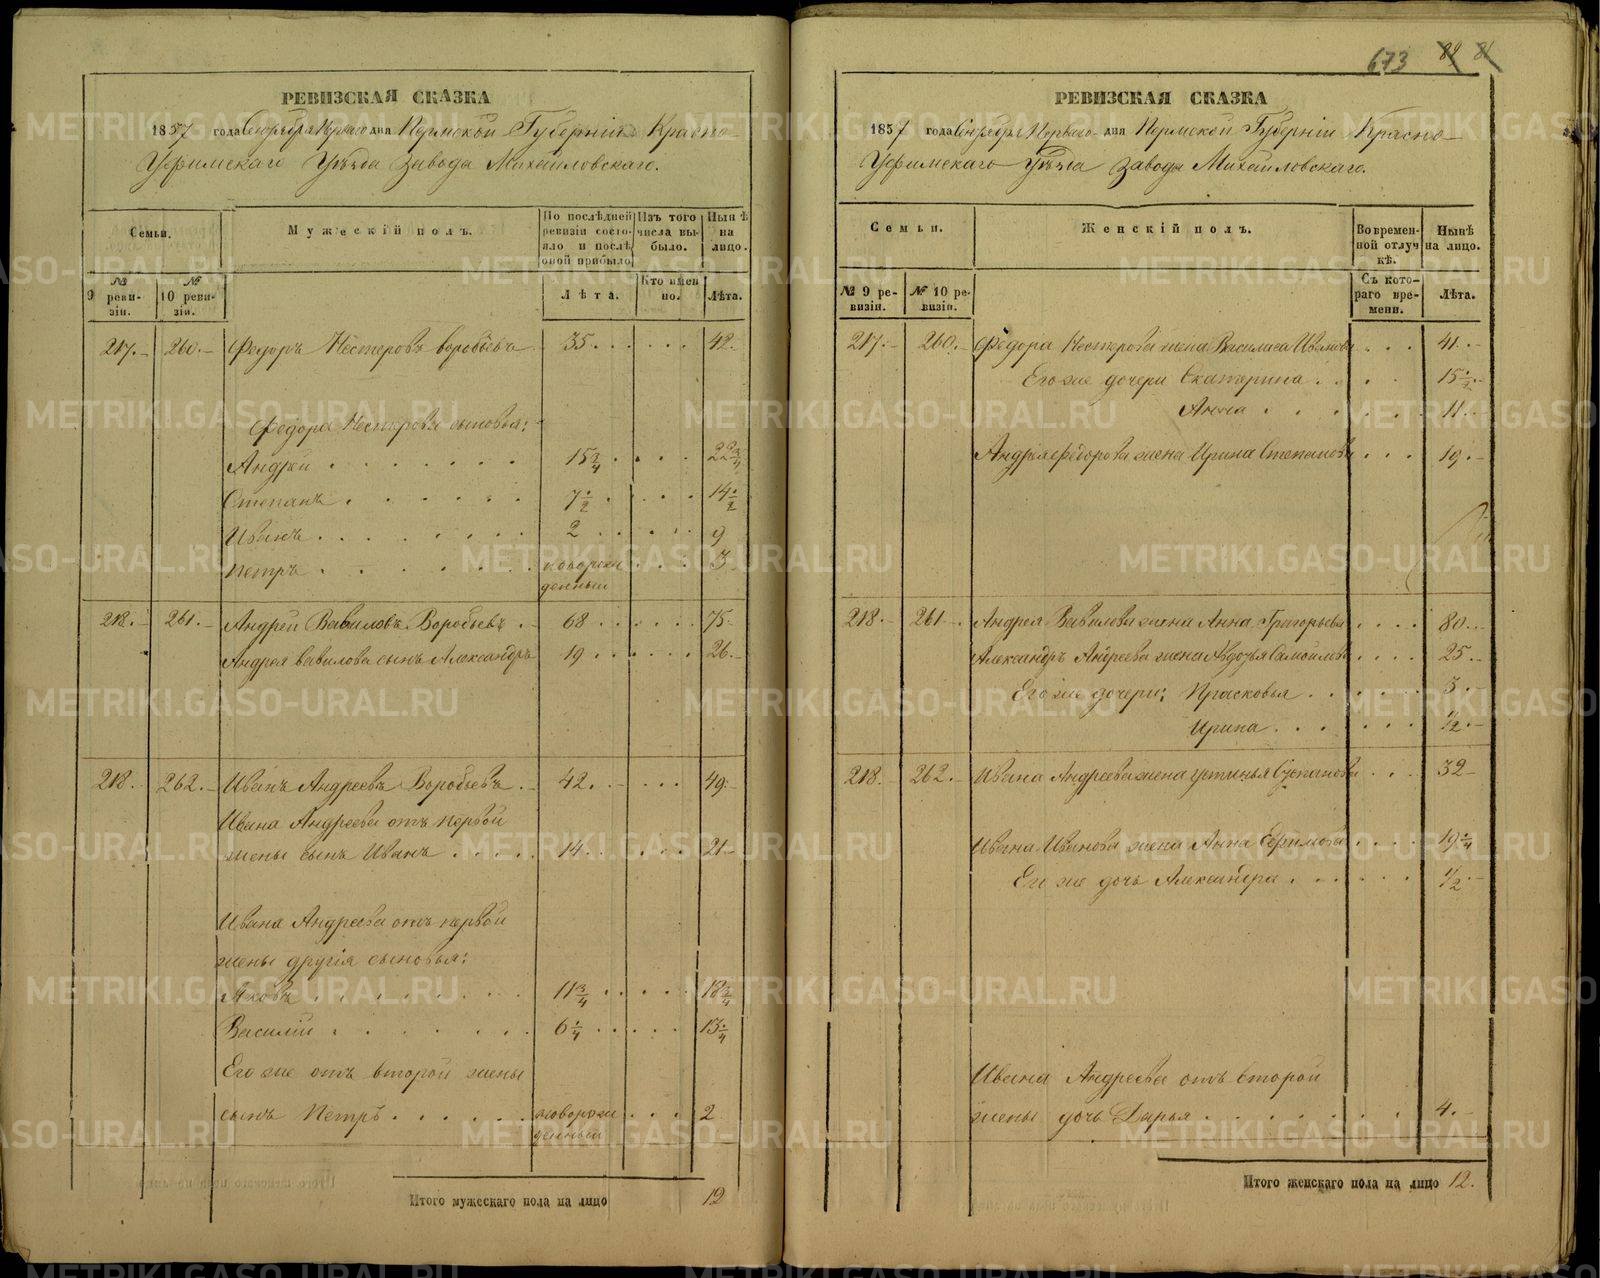 РЕВИЗСКАЯ СКАЗКА
1857 года Сентября Перваго дня Пермской Губерніи Красно-
Уфимскаго Уѣзда завода Михайловскаго.
Семьи.
Мужескій полъ.
По послѣдней ревизіи состояло и послѣ оной прибыло
Изъ того числа выбыло.
Нынѣ на лицо.
№ 9 ревизіи.
№ 10 ревизіи.
Лѣта.
Кто именно.
Лѣта.
217. 260. Федоръ Нестеровъ Воробьевъ 35 42.
Федора Нестерова сыновья:
Андрей 15 3/4 22 3/4
Степанъ 7 1/2 14 1/2
Иванъ 2 9
Петръ новорожденный 3
218. 261. Андрей Вавиловъ Воробьевъ 68 75
Андрея Вавилова сынъ Александръ 19 26.
218. 262. Иванъ Андреевъ Воробьевъ 42. 49.
Ивана Андреева отъ первой
жены сынъ Иванъ 14 21
Ивана Андреева отъ первой
жены другія сыновья:
Яковъ 11 3/4 18 3/4
Василій 6 1/4 13 1/4
Его же отъ второй жены
сынъ Петръ новорожденный 2
Итого мужескаго пола на лицо 12
673
РЕВИЗСКАЯ СКАЗКА
1857 года Сентября Перваго дня Пермской Губерніи Красно-
Уфимскаго Уѣзда завода Михайловскаго.
Семьи.
Женскій полъ.
Во временной отлучкѣ.
Нынѣ на лицо.
№ 9 ревизіи.
№ 10 ревизіи.
Съ котораго времени.
Лѣта.
217. 260. Федора Нестерова жена Василиса Иванова 41.
Его же дочери Екатерина 15 1/2
Анна 11
Андрея Федорова жена Ирина Степанова 19.
218. 261. Андрея Вавилова жена Анна Григорьева 80.
Александръ Андреева жена Авдотья Самойлова 25
Его же дочери: Прасковья 3.
Ирина 1/2
218. 262. Ивана Андреева жена Устинья 32
Ивана Иванова жена Анна Ефимова 19 1/4
Его же дочь Александра 1/2
Ивана Андреева отъ второй
жены дочь Дарья 4.
Итого женскаго пола на лицо 12.
METRIKI.GASO-URAL.RU